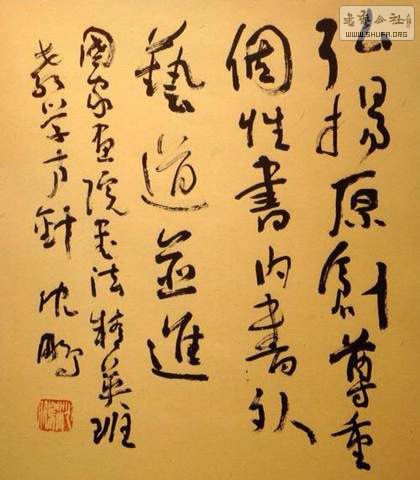 弘揚原創尊重
個性書內書外
藝道並進
國家畫院書法精英班
教学方針 沈鹏
書藝公社
WWW.SHUFA.ORG